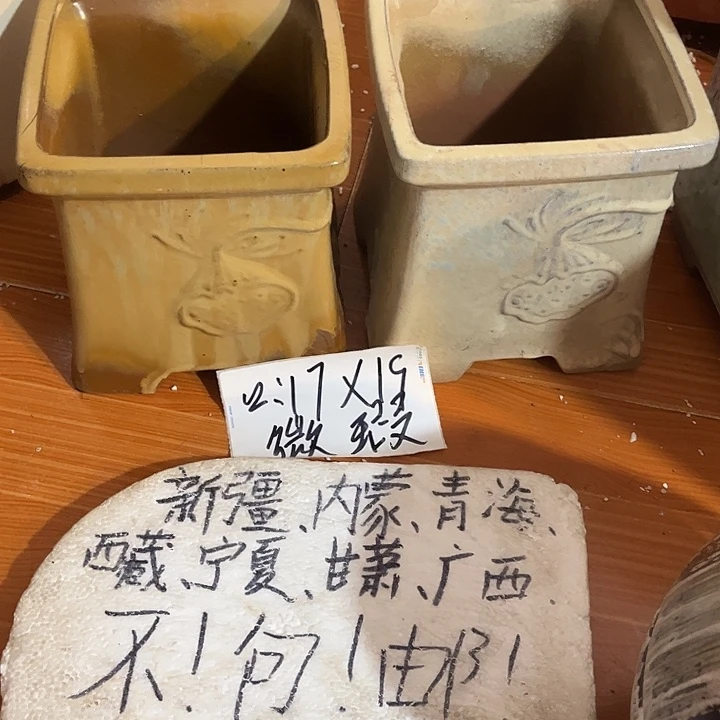 口:17X19
微 瑕
新疆、内蒙、青海、
西藏、宁夏、甘萧、广西.
不!包!邮!